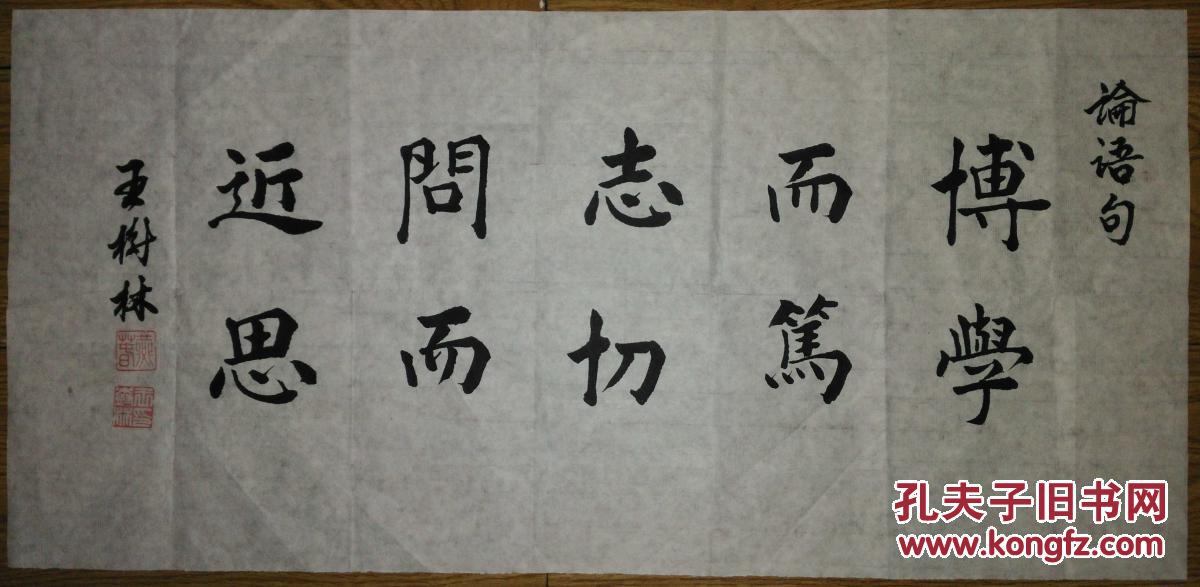 論语句
博學
而篤
志切
問而
近思
王樹林
孔夫子旧书网
www.kongfz.com